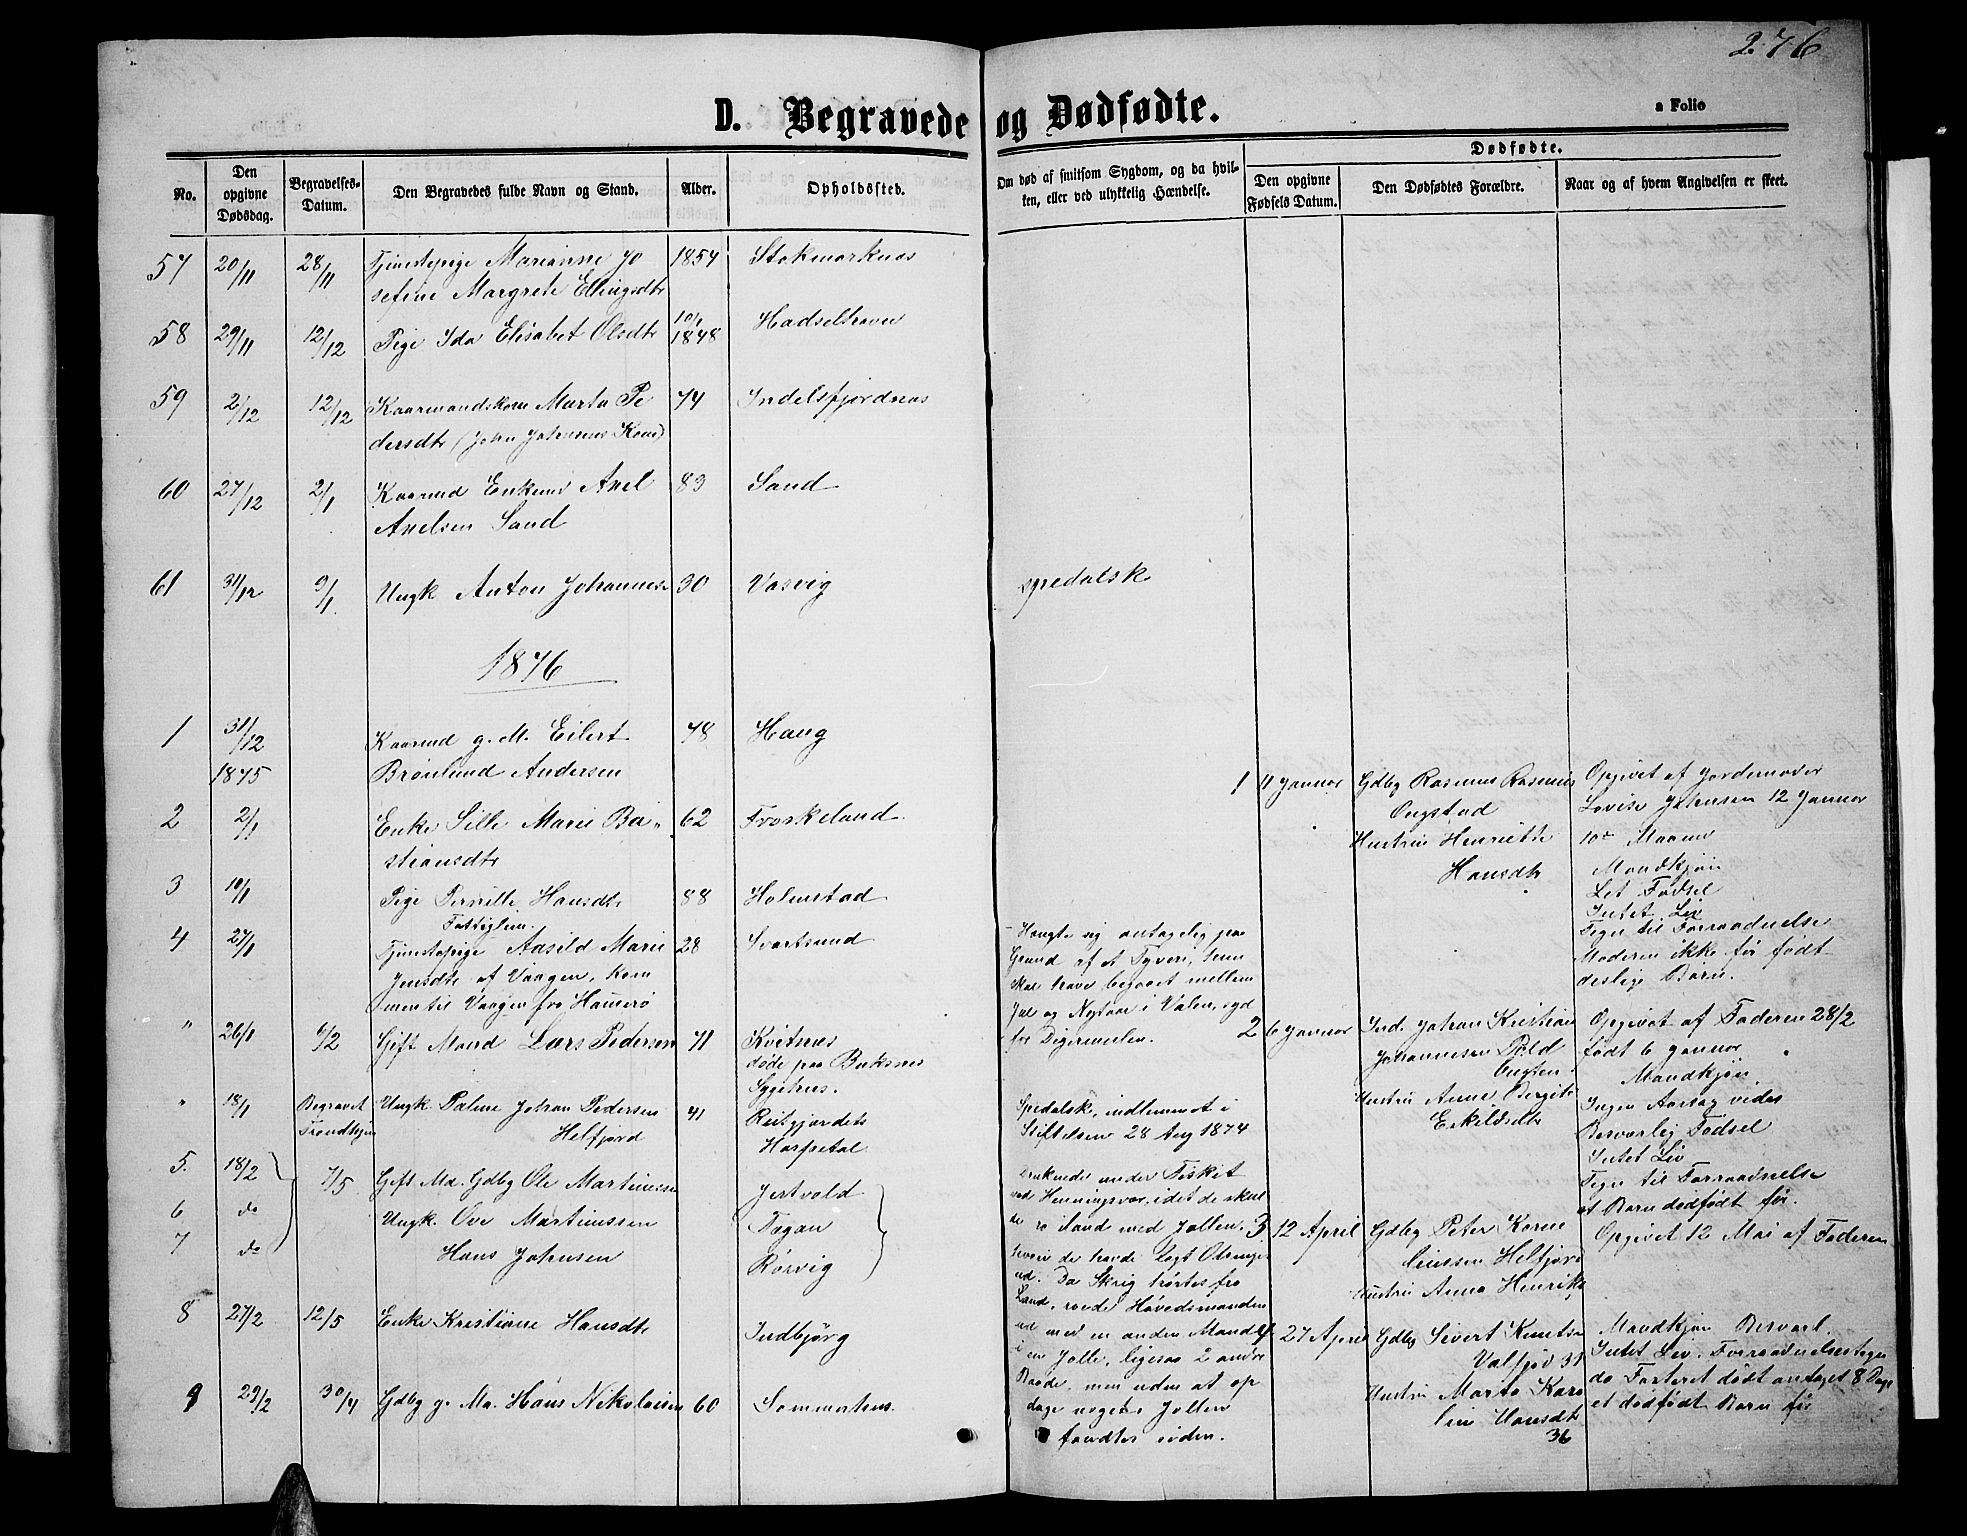 276
D. Begravede og Dødfødte.
a Folio
No.
Den opgivne Dødsdag.
Begravelses-Datum.
Den Begravedes fulde Navn og Stand.
Alder.
Opholdssted.
Om død af smitsom Sygdom, og da hvil-
ken, eller ved ulykkelig Hændelse.
Dødfødte.
Den opgivne Fødsels Datum.
Den Dødfødtes Forældre.
Naar og af hvem Angivelsen er skeet.
57 20/11 28/11 Tjenestepige Marianne Jo 1854 Stokmarknes
sefine Margrete Ellingsdtr
58 29/11 12/12 Pige Ida Elisabet Olsdtr 10/1 1848 Hadselhavn
59 2/12 12/12 Kaarmandskone Marta Pe 74 Indelsfjordnes
dersdtr (John Johnsens Kone)
60 27/12 2/1 Kaarmd Enkem Axel 83 Sand
Axelsen Sand
61 31/12 9/1 Ungk Anton Johannes 30 Vasvig spedalsk
1876
1 31/12 1875 Kaarmd g. M. Eilert 78 Haug
Brönlund Andersen
2 2/1 Enke Sille Marie Ba 62 Froskeland
stiansdtr
3 10/1 Pige Pernille Hansdtr 88 Holmstad
Fattiglem.
4 27/1 Tjenestepige Aasild Marie 28 Svartsund
Jensdtr af Vaagen, kom
men til Vaagen fra Hamerö
Hængte sig antagelig paa
Grund af et Tyveri, hun
skal have begaaet mellem
Jul og Nytaar i Valen, syd
for Digermulen.
" 26/1 6/2 Gift Mand Lars Pedersen 71 Kvitnes
døde paa Buksnes
Sygehus.
" 18/1 Begravet Trondhjem Ungk Palme Johan Pedersen 41 Reitgjerdets
Helfjord Hospital
Spedalsk, indlemmet i
Stiftelsen 28 Aug 1874
5. 18/2 7/5 Gift Ma. Gdbg Ole Martinussen Jertvold
6 do Ungk. Ove Martinussen Fagan
7 do Hans Johnsen Rørvig
under Fisket
ved Henningsvær, idet de skul
de ro iland med Jollen,
hvori de havde
ud. Da Skrig hørtes fra
Land, roede Høvedsmanden
ud med en anden Mand
i en Jolle, ligesaa 2 andre
Baade, men uden at op
dage noget. Jollen
fandtes siden.
8 27/2 12/5 Enke Kristiane Hansdtr Indbjörg
9 29/2 30/4 Gdbg g. Ma. Hans Nikolaisen 60 Sommarhus.
1 11 Januar Gdbg Rasmus Rasmus
Ongstad
Hustru Henriette
Hansdtr
Opgivet af Jordemoder
Lovise Johnsen 12 Januar
10de Maaned
Mandkjön
Let Fødsel
Intet Liv
Tegn til Forraadnelse
Moderen ikke før født
deslige Børn.
2 6 Januar Ind. Johan Kristian
Johannesen Pold
Engten
Hustru Anne Bergite
Eskildsdtr
Opgivet af Faderen 28/2
født 6 Januar
Mandkjön
Ingen Aarsag vides
Besværlig Fødsel
Intet Liv
Tegn til Forraadnelse
et Barn dödfødt før.
3 12 April Gdbg Peter Korne
liussen Helfjord
Hustru Anna Henriks
Opgivet 12 Mai af Faderen
4 27 April Gdbg Sivert Knutsen
Valfjord 31
Hustru Marta Karo
line Hansdtr
36
Mandkjön Besværl.
Intet Liv. Forraadnelsestegn
da Fosteret dödt antaget 8 Dage
et dödfødt Barn før